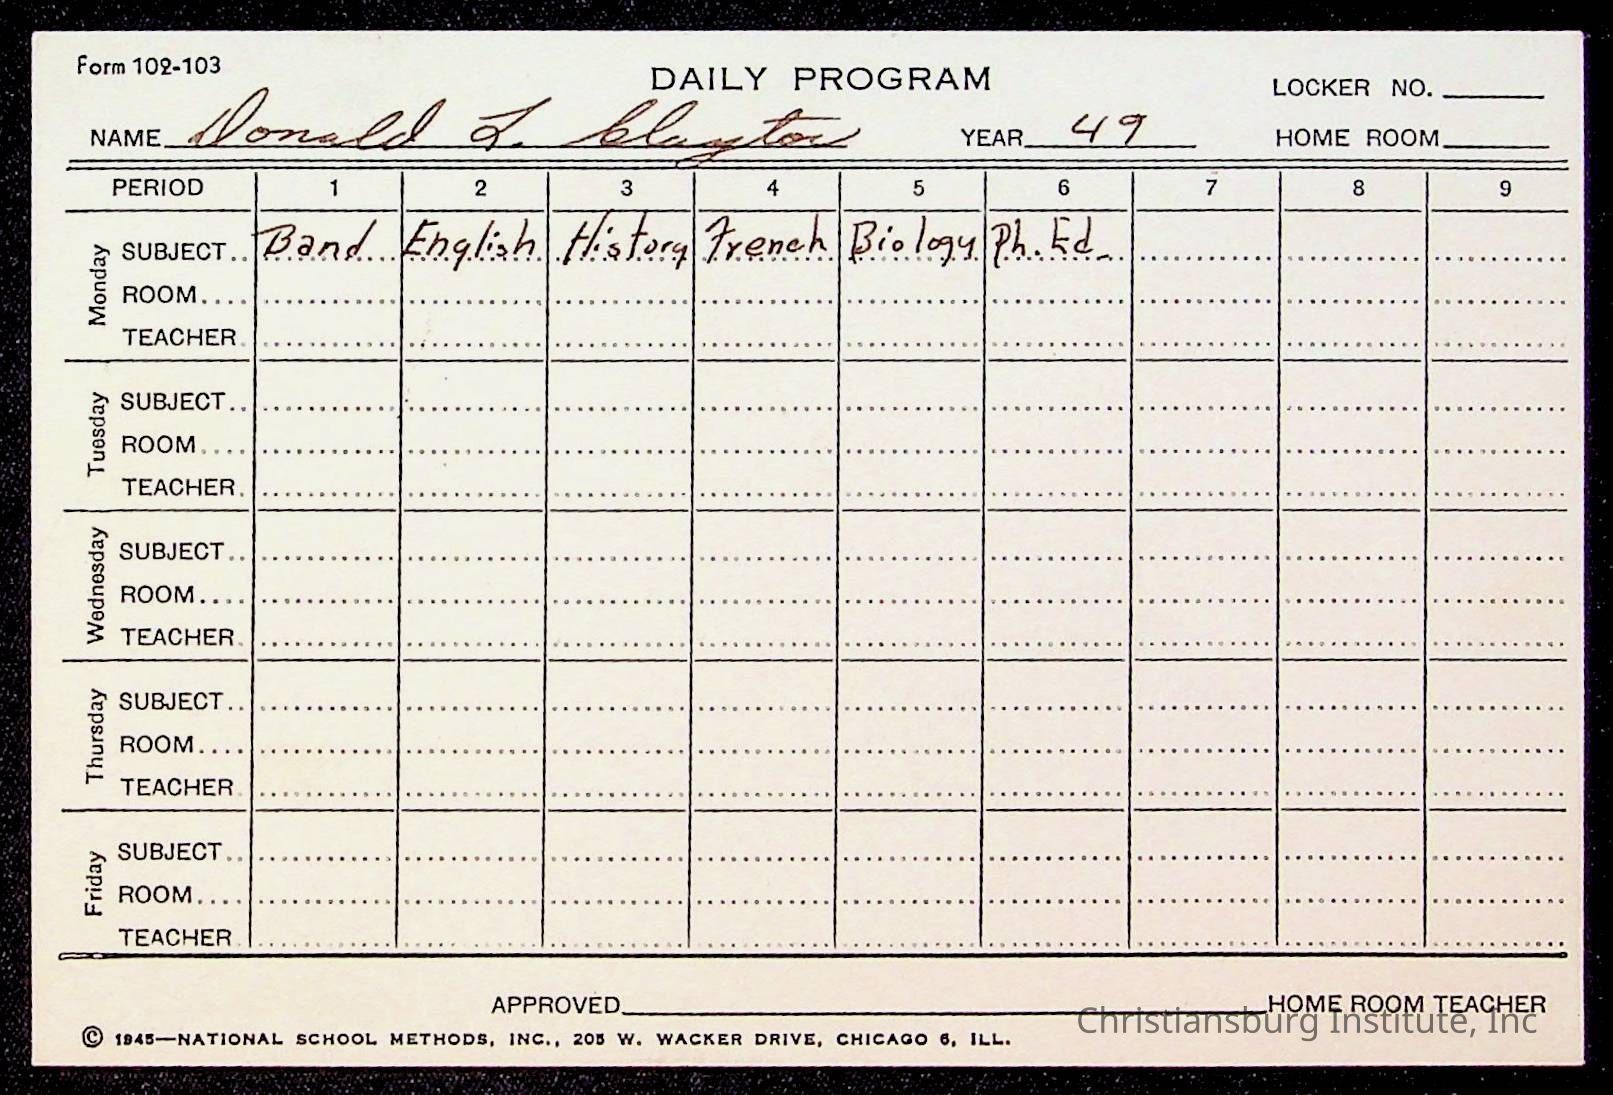 Form 102-103
DAILY PROGRAM
LOCKER NO.
NAME Donald L. Clayton YEAR 49 HOME ROOM
PERIOD 1 2 3 4 5 6 7 8 9
Monday
SUBJECT Band English History French Biology Ph. Ed.
ROOM
TEACHER
Tuesday
SUBJECT
ROOM
TEACHER
Wednesday
SUBJECT
ROOM
TEACHER
Thursday
SUBJECT
ROOM
TEACHER
Friday
SUBJECT
ROOM
TEACHER
APPROVED HOME ROOM TEACHER
Christiansburg Institute, Inc
© 1945—NATIONAL SCHOOL METHODS, INC., 205 W. WACKER DRIVE, CHICAGO 6, ILL.